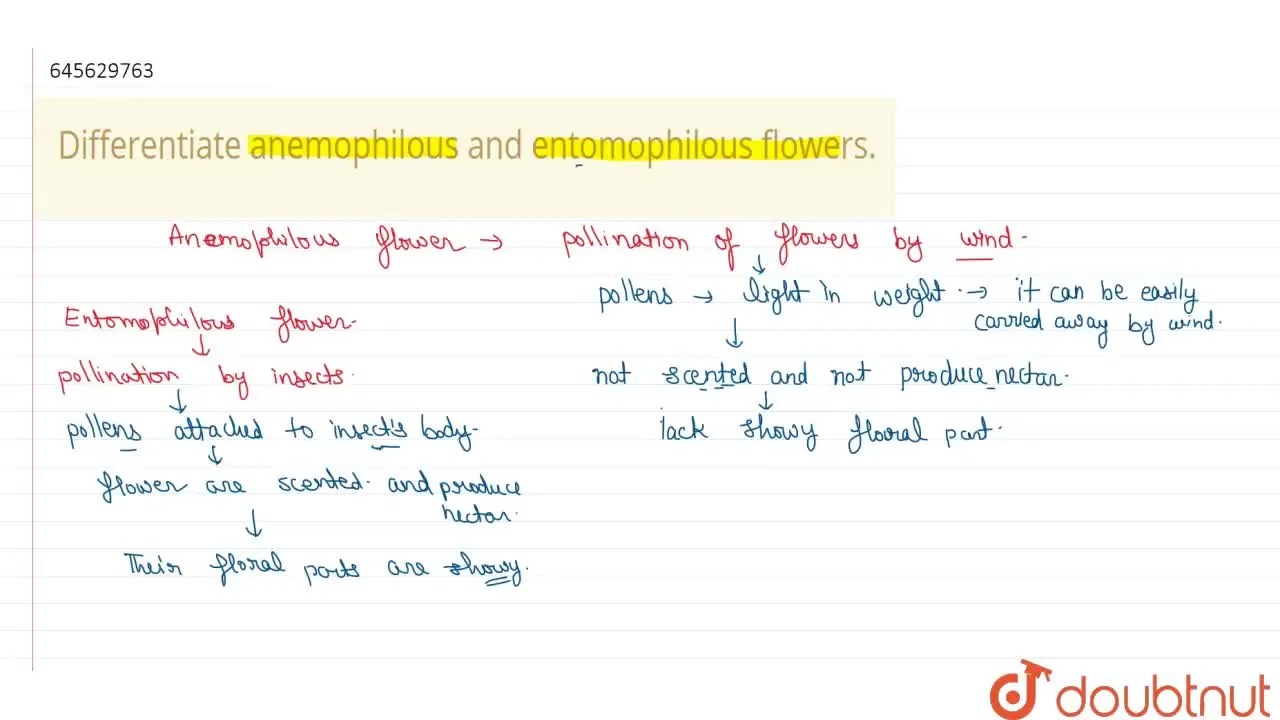 645629763
Differentiate anemophilous and entomophilous flowers.
Anemophilous flower → pollination of flowers by wind.
↓
pollens → light in weight. → it can be easily
carried away by wind.
↓
not scented and not produce nectar.
↓
lack showy floral part.
Entomophilous flower.
↓
pollination by insects.
↓
pollens attached to insect's body.
↓
flower are scented. and produce
nectar.
↓
Their floral parts are showy.
doubtnut